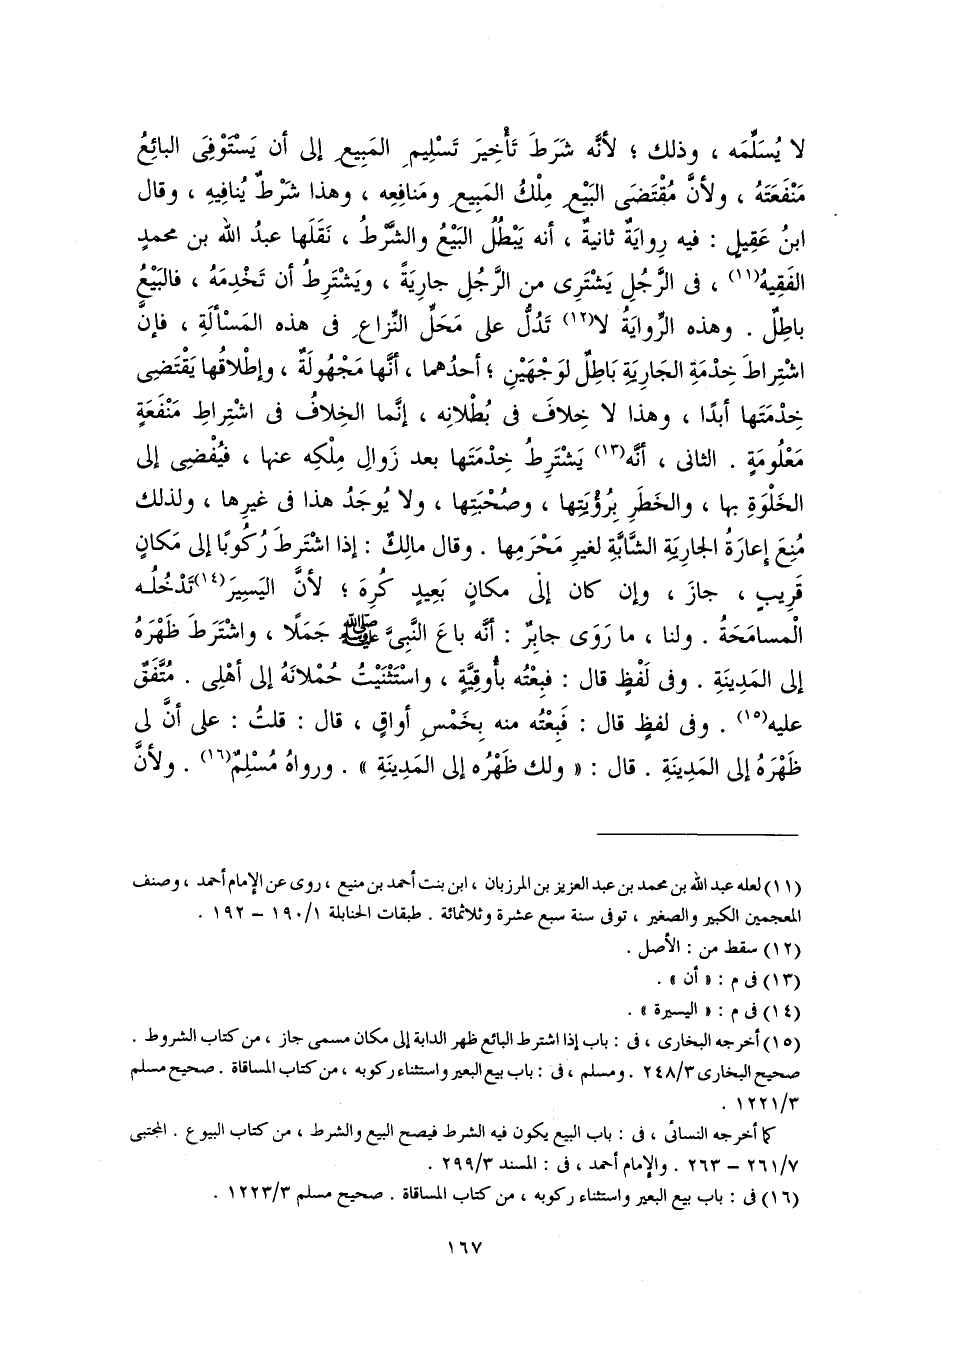 لا يُسَلِّمَه ، وذلك ؛ لأنَّه شَرَطَ تَأْخِيرَ تَسْلِيمِ المَبِيعِ إلى أن يَسْتَوْفِىَ البائِعُ
مَنْفَعَتَهُ ، ولأنَّ مُقْتَضَى البَيْعِ مِلْكُ المَبِيعِ ومَنافِعِه ، وهذا شَرْطٌ يُنافِيهِ ، وقال
ابنُ عَقِيلٍ : فيه رِوايَةٌ ثانيةٌ ، أنه يَبْطُلُ البَيْعُ والشَّرْطُ ، نَقَلَها عبدُ الله بن محمدٍ
الفَقِيهُ(١١) ، فى الرَّجُلِ يَشْتَرِى من الرَّجُلِ جارِيَةً ، ويَشْتَرِطُ أن تَخْدِمَهُ ، فالبَيْعُ
باطِلٌ . وهذه الرِّوايَةُ لا(١٢) تَدُلُّ على مَحَلِّ النِّزاعِ فى هذه المَسْألَةِ ، فإنَّ
اشْتِراطَ خِدْمَةِ الجَارِيَةِ بَاطِلٌ لوَجْهَيْنِ ؛ أحدُهما ، أنَّها مَجْهُولَةٌ ، وإطْلاقُها يَقْتَضِى
خِدْمَتَها أبدًا ، وهذا لا خِلافَ فى بُطْلانِه ، إنَّما الخِلافُ فى اشْتِراطِ مَنْفَعَةٍ
مَعْلُومَةٍ . الثانى ، أنَّه(١٣) يَشْتَرِطُ خِدْمَتَها بعد زَوالِ مِلْكِه عنها ، فيُفْضِى إلى
الخَلْوَةِ بها ، والخَطَرِ بِرُؤْيَتِها ، وصُحْبَتِها ، ولا يُوجَدُ هذا فى غيرِها ، ولذلك
مُنِعَ إعارَةُ الجارِيَةِ الشَّابَّةِ لغيرِ مَحْرَمِها . وقال مالِكٌ : إذا اشْتَرطَ رُكُوبًا إلى مَكانٍ
قَرِيبٍ ، جازَ ، وإن كان إلى مكانٍ بَعِيدٍ كُرِهَ ؛ لأنَّ اليَسِيرَ(١٤) تَدْخُلُه
الْمسامَحَةُ . ولنا ، ما رَوَى جابِرٌ : أنَّه باعَ النَّبِىَّ ﷺ جَمَلًا ، واشْتَرَطَ ظَهْرَهُ
إلى المَدِينَةِ . وفى لَفْظٍ قال : فبِعْتُه بأُوقِيَّةٍ ، واسْتَثْنَيْتُ حُمْلانَهُ إلى أهْلِى . مُتَّفَقٌ
عليه(١٥) . وفى لفظٍ قال : فَبِعْتُه منه بِخَمْسِ أواقٍ ، قال : قلتُ : على أنَّ لى
ظَهْرَهُ إلى المَدِينَةِ . قال : « ولك ظَهْرُه إلى المَدِينَةِ » . ورواهُ مُسْلِمٌ(١٦) . ولأنَّ
(١١) لعله عبد الله بن محمد بن عبد العزيز بن المرزبان ، ابن بنت أحمد بن منيع ، روى عن الإمام أحمد ، وصنف
المعجمين الكبير والصغير ، توفى سنة سبع عشرة وثلاثمائة . طبقات الحنابلة ١٩٠/١ – ١٩٢ .
(١٢) سقط من : الأصل .
(١٣) فى م : « أن » .
(١٤) فى م : « اليسيرة » .
(١٥) أخرجه البخارى ، فى : باب إذا اشترط البائع ظهر الدابة إلى مكان مسمى جاز ، من كتاب الشروط .
صحيح البخارى ٢٤٨/٣ . ومسلم ، فى : باب بيع البعير واستثناء ركوبه ، من كتاب المساقاة . صحيح مسلم
١٢٢١/٣ .
كما أخرجه النسائى ، فى : باب البيع يكون فيه الشرط فيصح البيع والشرط ، من كتاب البيوع . المجتبى
٢٦١/٧ – ٢٦٣ . والإمام أحمد ، فى : المسند ٢٩٩/٣ .
(١٦) فى : باب بيع البعير واستثناء ركوبه ، من كتاب المساقاة . صحيح مسلم ١٢٢٣/٣ .
١٦٧